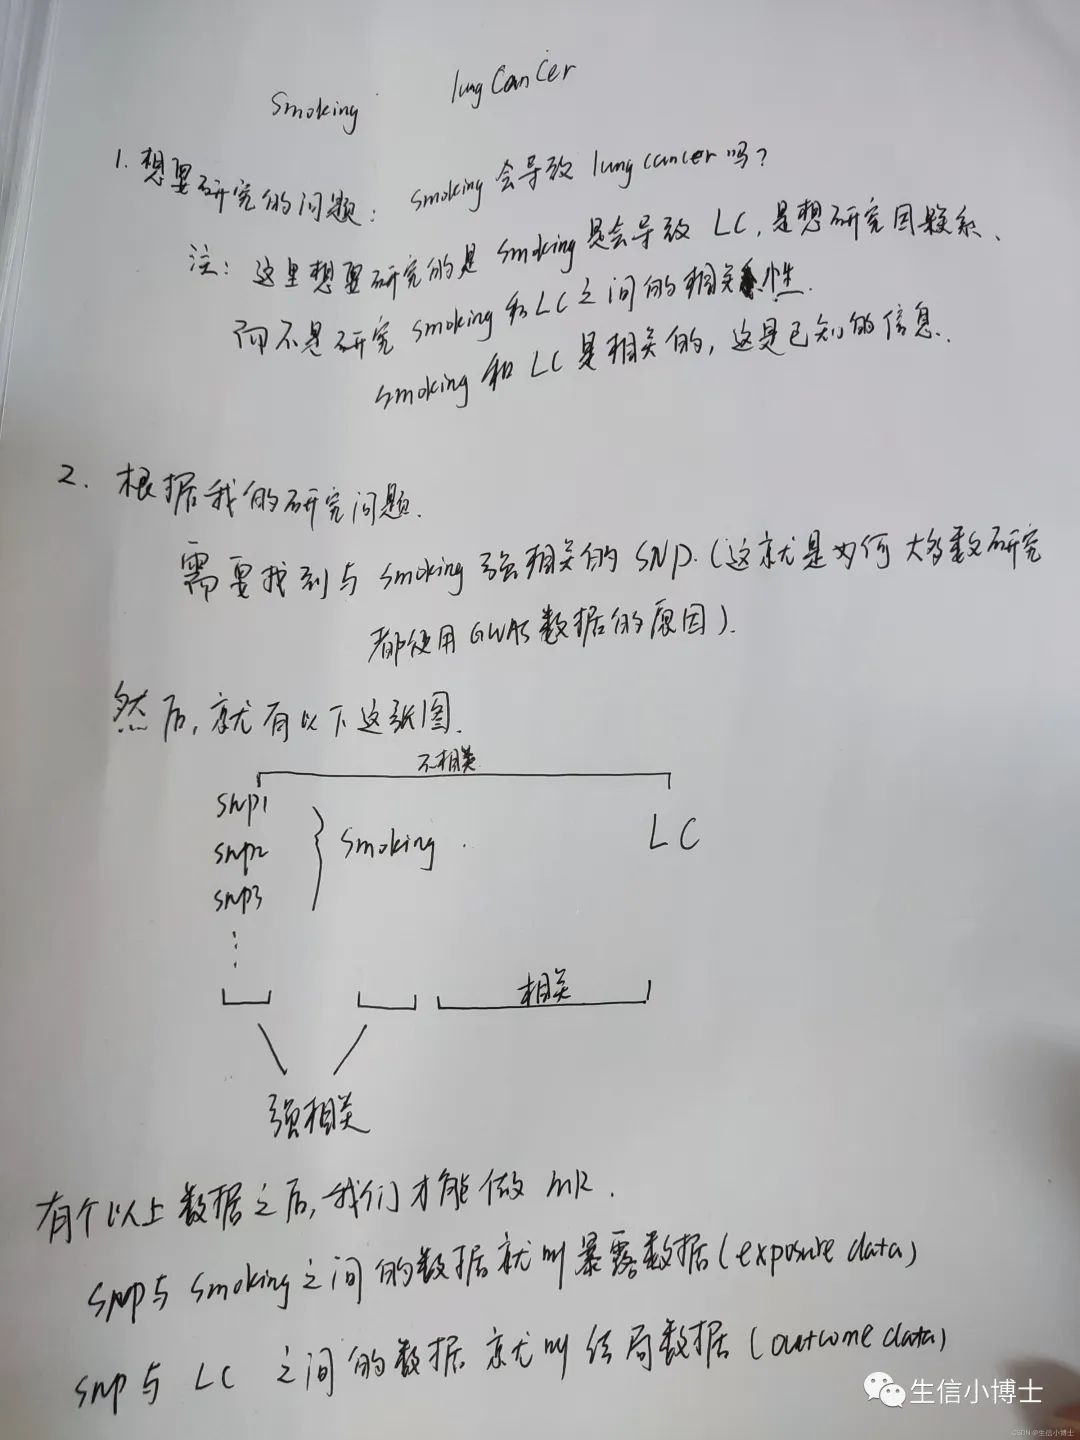 Smoking lung Cancer
1. 想要研究的问题: smoking会导致 lung cancer吗?
注: 这里想要研究的是 smoking是会导致 LC, 是想研究因果关系、
而不是研究 smoking 和LC之间的相关性.
smoking 和 LC 是相关的, 这是已知的信息.
2. 根据我的研究问题.
需要找到与 smoking 强相关的 SNP. (这就是为何 大多数研究
都使用 GWAS数据的原因).
然后, 就有以下这张图.
不相关
snp1
snp2
snp3
} smoking.
LC
相关
强相关
有个以上数据之后, 我们才能做 MR.
snp与 smoking 之间的数据就叫暴露数据(exposure data)
snp与 LC 之间的数据 就叫 结局数据 (outcome data)
生信小博士
CSDN @生信小博士